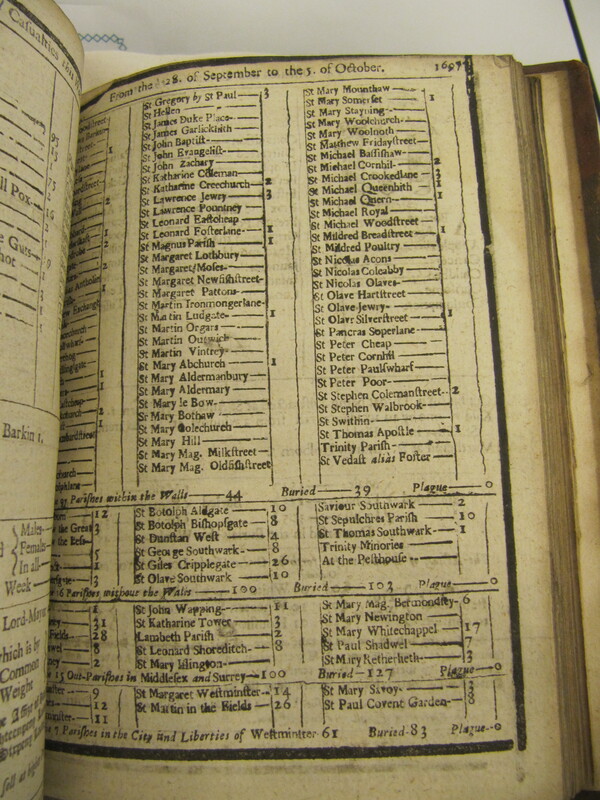 Casualties
From the 28. of September to the 5. of October. 1697
St Gregory by St Paul 3
St Hellen
St James Duke Place
St James Garlickhith
St John Baptist
St John Evangelist
St John Zachary
St Katharine Coleman
St Katharine Creechurch 2
St Lawrence Jewry 3
St Lawrence Pountney
St Leonard Eastcheap
St Leonard Fosterlane 1
St Magnus Parish 1
St Margaret Lothbury
St Margaret Moses
St Margaret Newfishstreet
St Margaret Pattons
St Martin Ironmongerlane
St Martin Ludgate 1
St Martin Orgars
St Martin Outwich
St Martin Vintrey
St Mary Abchurch 1
St Mary Aldermanbury
St Mary Aldermary
St Mary le Bow
St Mary Bothaw
St Mary Colechurch
St Mary Hill
St Mary Mag. Milkstreet
St Mary Mag. Oldfishstreet
St Mary Mounthaw
St Mary Somerset 1
St Mary Stayning
St Mary Woolchurch
St Mary Woolnoth
St Matthew Fridaystreet
St Michael Bassishaw
St Michael Cornhil 2
St Michael Crookedlane 3
St Michael Queenhith 1
St Michael Quern 1
St Michael Royal
St Michael Woodstreet
St Mildred Breadstreet 1
St Mildred Poultry
St Nicolas Acons
St Nicolas Coleabby
St Nicolas Olaves
St Olave Hartstreet
St Olave Jewry
St Olave Silverstreet 1
St Pancras Soperlane
St Peter Cheap
St Peter Cornhil
St Peter Paulswharf
St Peter Poor
St Stephen Colemanstreet 2
St Stephen Walbrook
St Swithin
St Thomas Apostle 1
Trinity Parish
St Vedast alias Foster
97 Parishes within the Walls 44 Buried 39 Plague 0
12
the Great 3
5
1
3
St Botolph Aldgate 10
St Botolph Bishopsgate 8
St Dunstan West 4
St George Southwark 8
St Giles Cripplegate 26
St Olave Southwark 10
Saviour Southwark 2
St Sepulchres Parish 10
St Thomas Southwark 1
Trinity Minories
At the Pesthouse
16 Parishes without the Walls 100 Buried 103 Plague 0
1
31
Fields 28
8
2
St John Wapping 11
St Katharine Tower 3
Lambeth Parish 2
St Leonard Shoreditch 8
St Mary Islington
St Mary Mag. Bermondsey 6
St Mary Newington
St Mary Whitechappel 17
St Paul Shadwel 7
St Mary Retherheth 3
15 Out-Parishes in Middlesex and Surrey 100 Buried 127 Plague 0
9
12
11
St Margaret Westminster 14
St Martin in the Fields 26
St Mary Savoy
St Paul Covent Garden 8
7 Parishes in the City and Liberties of Westminster 61 Buried 83 Plague 0
Pox
Guts
Barkin 1.
Males
Females
In all
Week
Lord Mayo
which is by
Common
Weight